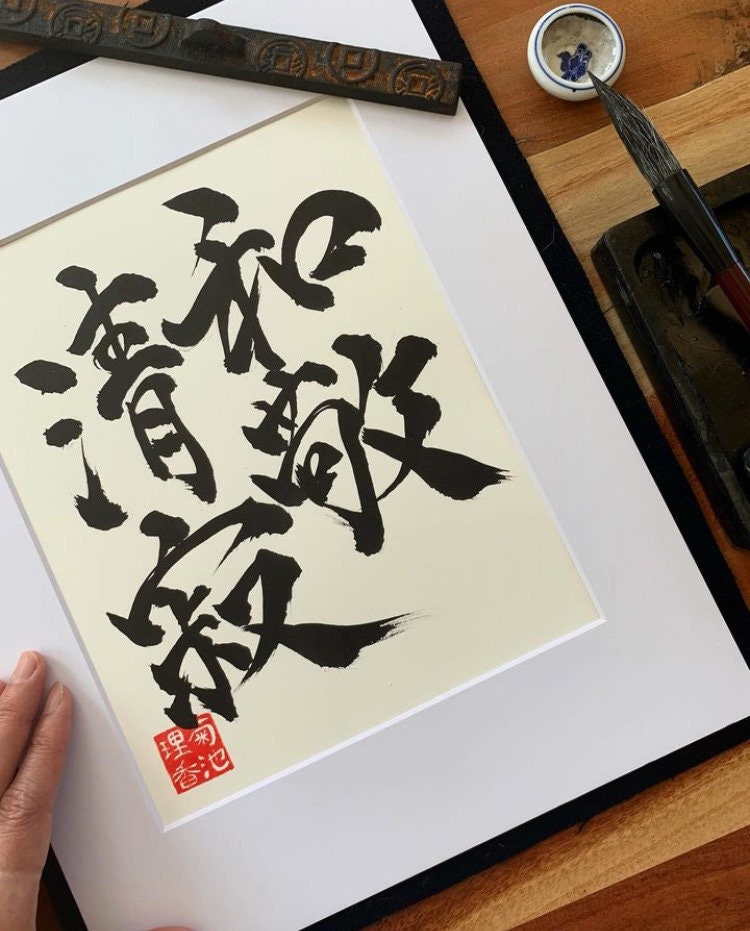 和敬
清寂
菊池
理香